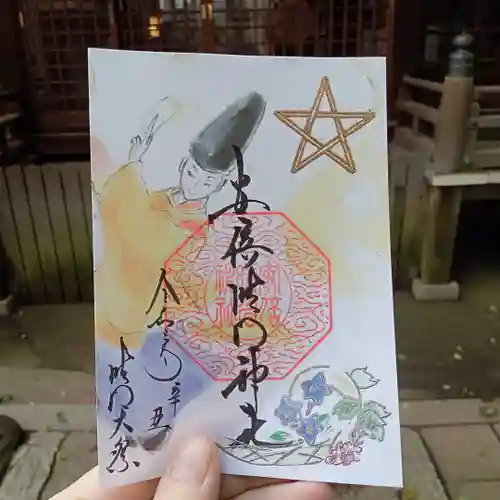 安倍晴明神社
令和三年辛丑
晴明大祭